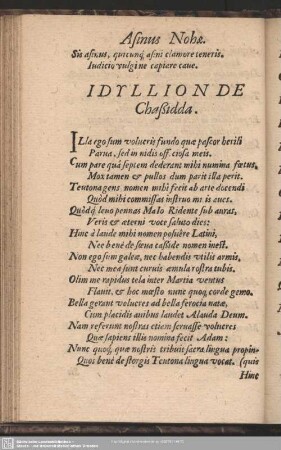 Asinus Nohæ.
Sis asinus, quicunq́ asini clamore teneris.
Iudicio vulgi ne capiare cave.
IDYLLION DE
Chaßidda.
ILla ego sum volucris fundo quæ pascor herili
Parva, sed in nidis officiosa meis.
Cum pare quâ septem dederant mihi numina fœtus,
Mox tamen & pullos dum parit illa perit.
Teutona gens nomen mihi fecit ab arte docendi
Quòd mihi commissas instruo mis is aves.
Quòdq́ levo pennas Malo Ridente sub auras,
Veris & æterni voce saluto dies:
Hinc à laude mihi nomen posuêre Latini,
Nec benè de sæva casside nomen inest.
Non ego sum galea, nec habendis utilis armis,
Nec mea sunt curvis æmula rostra tubis.
Olim me rapidas tela inter Martia ventus
Flavit, & hoc mæsto nunc quoq́ corde gemo.
Bella gerant volucres ad bella ferocia natæ,
Cum placidis avibus laudet Alauda Deum.
Nam referunt nostras etiam servasse volucres
Quæ sapiens illis nomina fecit Adam:
Nunc quoq́, quæ nostris tribuit sacra lingua propin-
Quos benè de storgis Teutona lingua vocat. (quis
Hinc